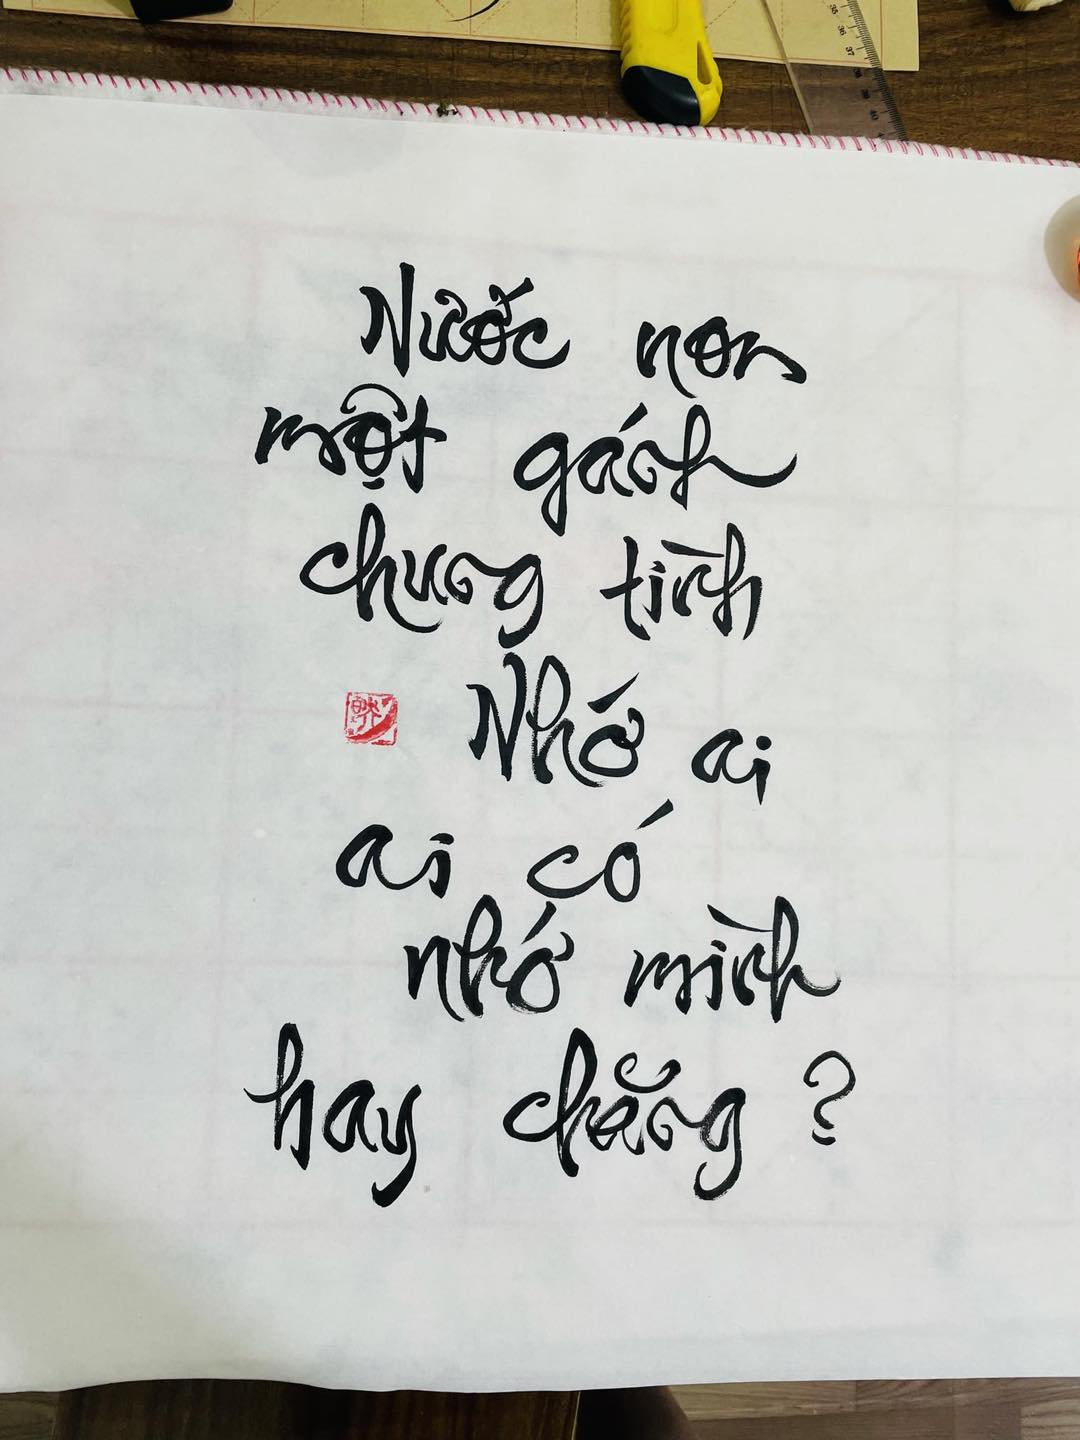 Nước non
một gánh
chung tình
Nhớ ai
ai có
nhớ mình
hay chăng ?